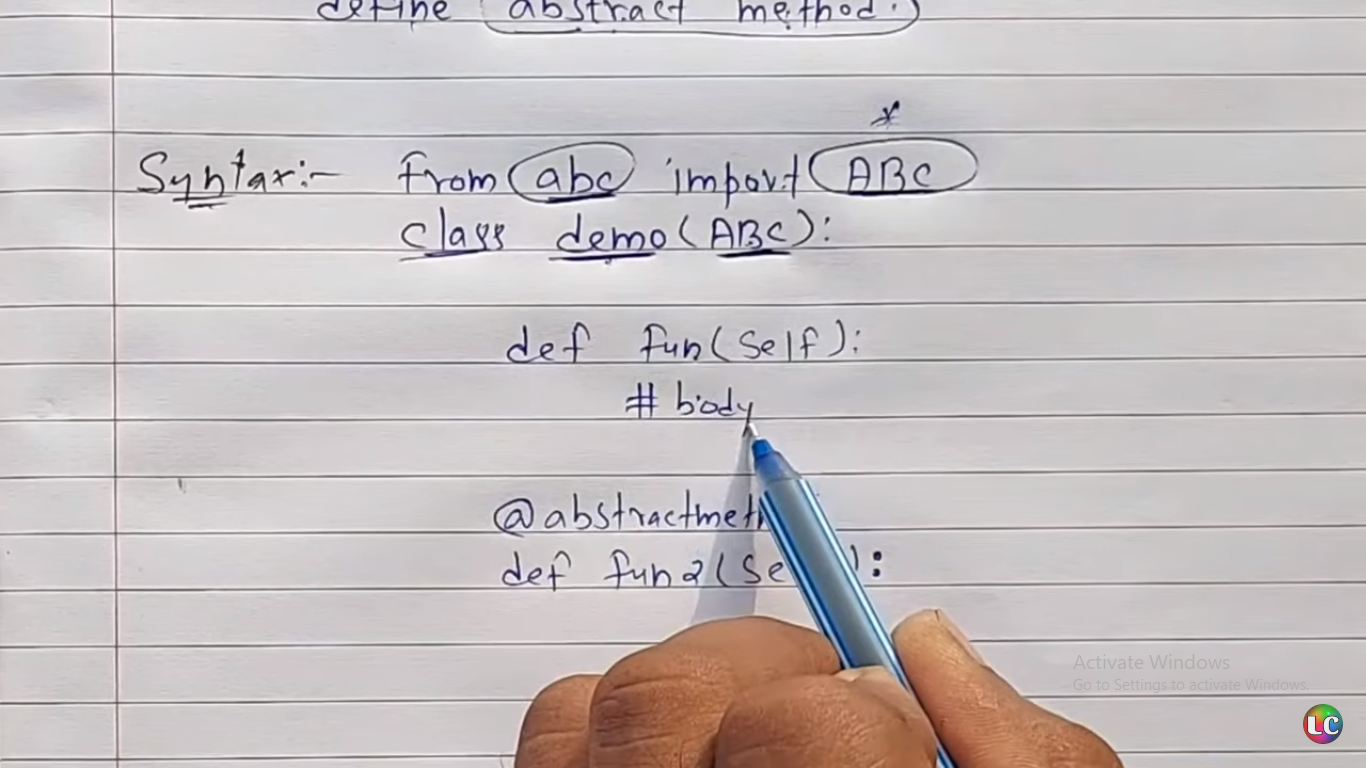 define abstract method.
*
Syntax:- from abc import ABC
class demo(ABC):
def fun(self):
# body
@abstractmeth
def fun2(Se ):
Activate Windows
Go to Settings to activate Windows.
LC